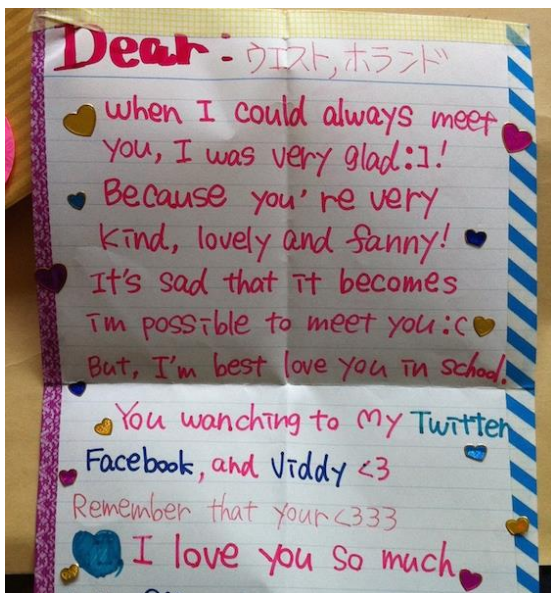 Dear: ウエスト, ホランド
When I could always meet
you, I was very glad:]!
Because you're very
kind, lovely and fanny!
It's sad that it becomes
impossible to meet you:c
But, I'm best love you in school.
You wanching to my Twitter
Facebook, and Viddy <3
Remember that your<333
I love you so much